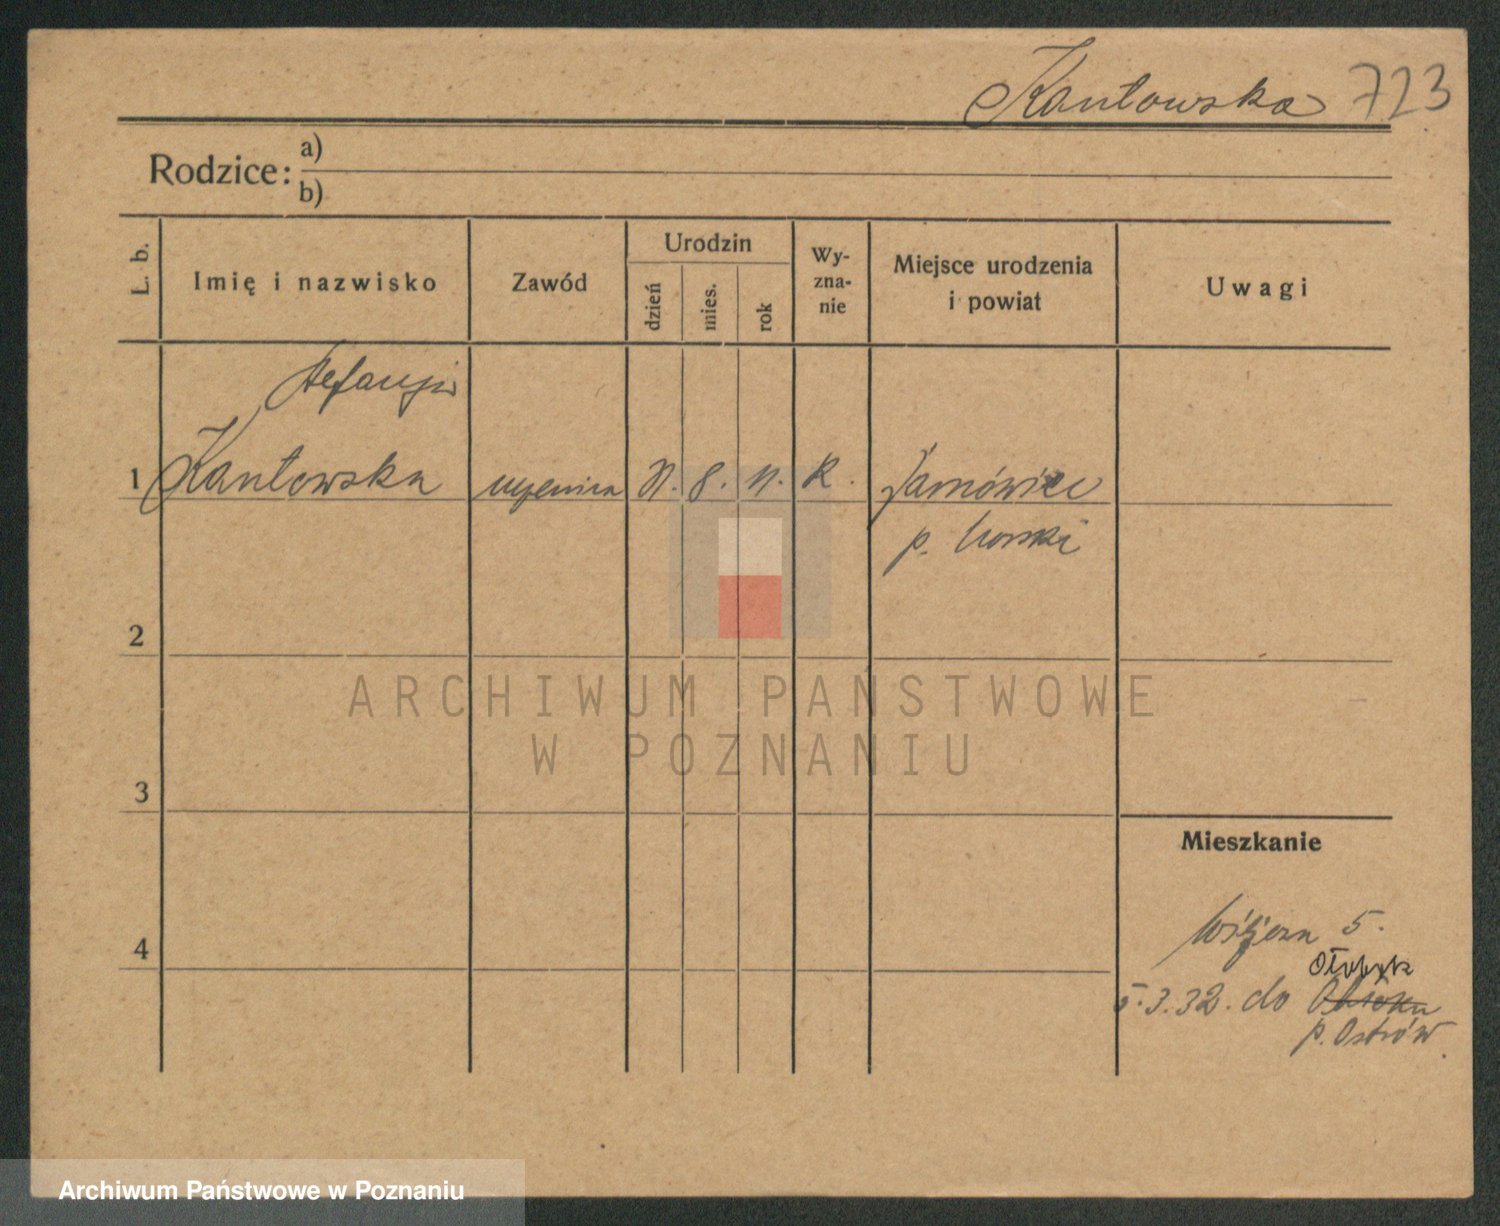 Kantowska 723
Rodzice: a)
b)
L. b.
Imię i nazwisko
Zawód
Urodzin
dzień
mies.
rok
Wy-
zna-
nie
Miejsce urodzenia
i powiat
Uwagi
Stefanja
1 Kantowska uczenica 8. 11. R.
p.
2
3
4
Mieszkanie
5.
Ołobok
5.3.32. do
p. Ostrów.
ARCHIWUM PAŃSTWOWE
W POZNANIU
Archiwum Państwowe w Poznaniu